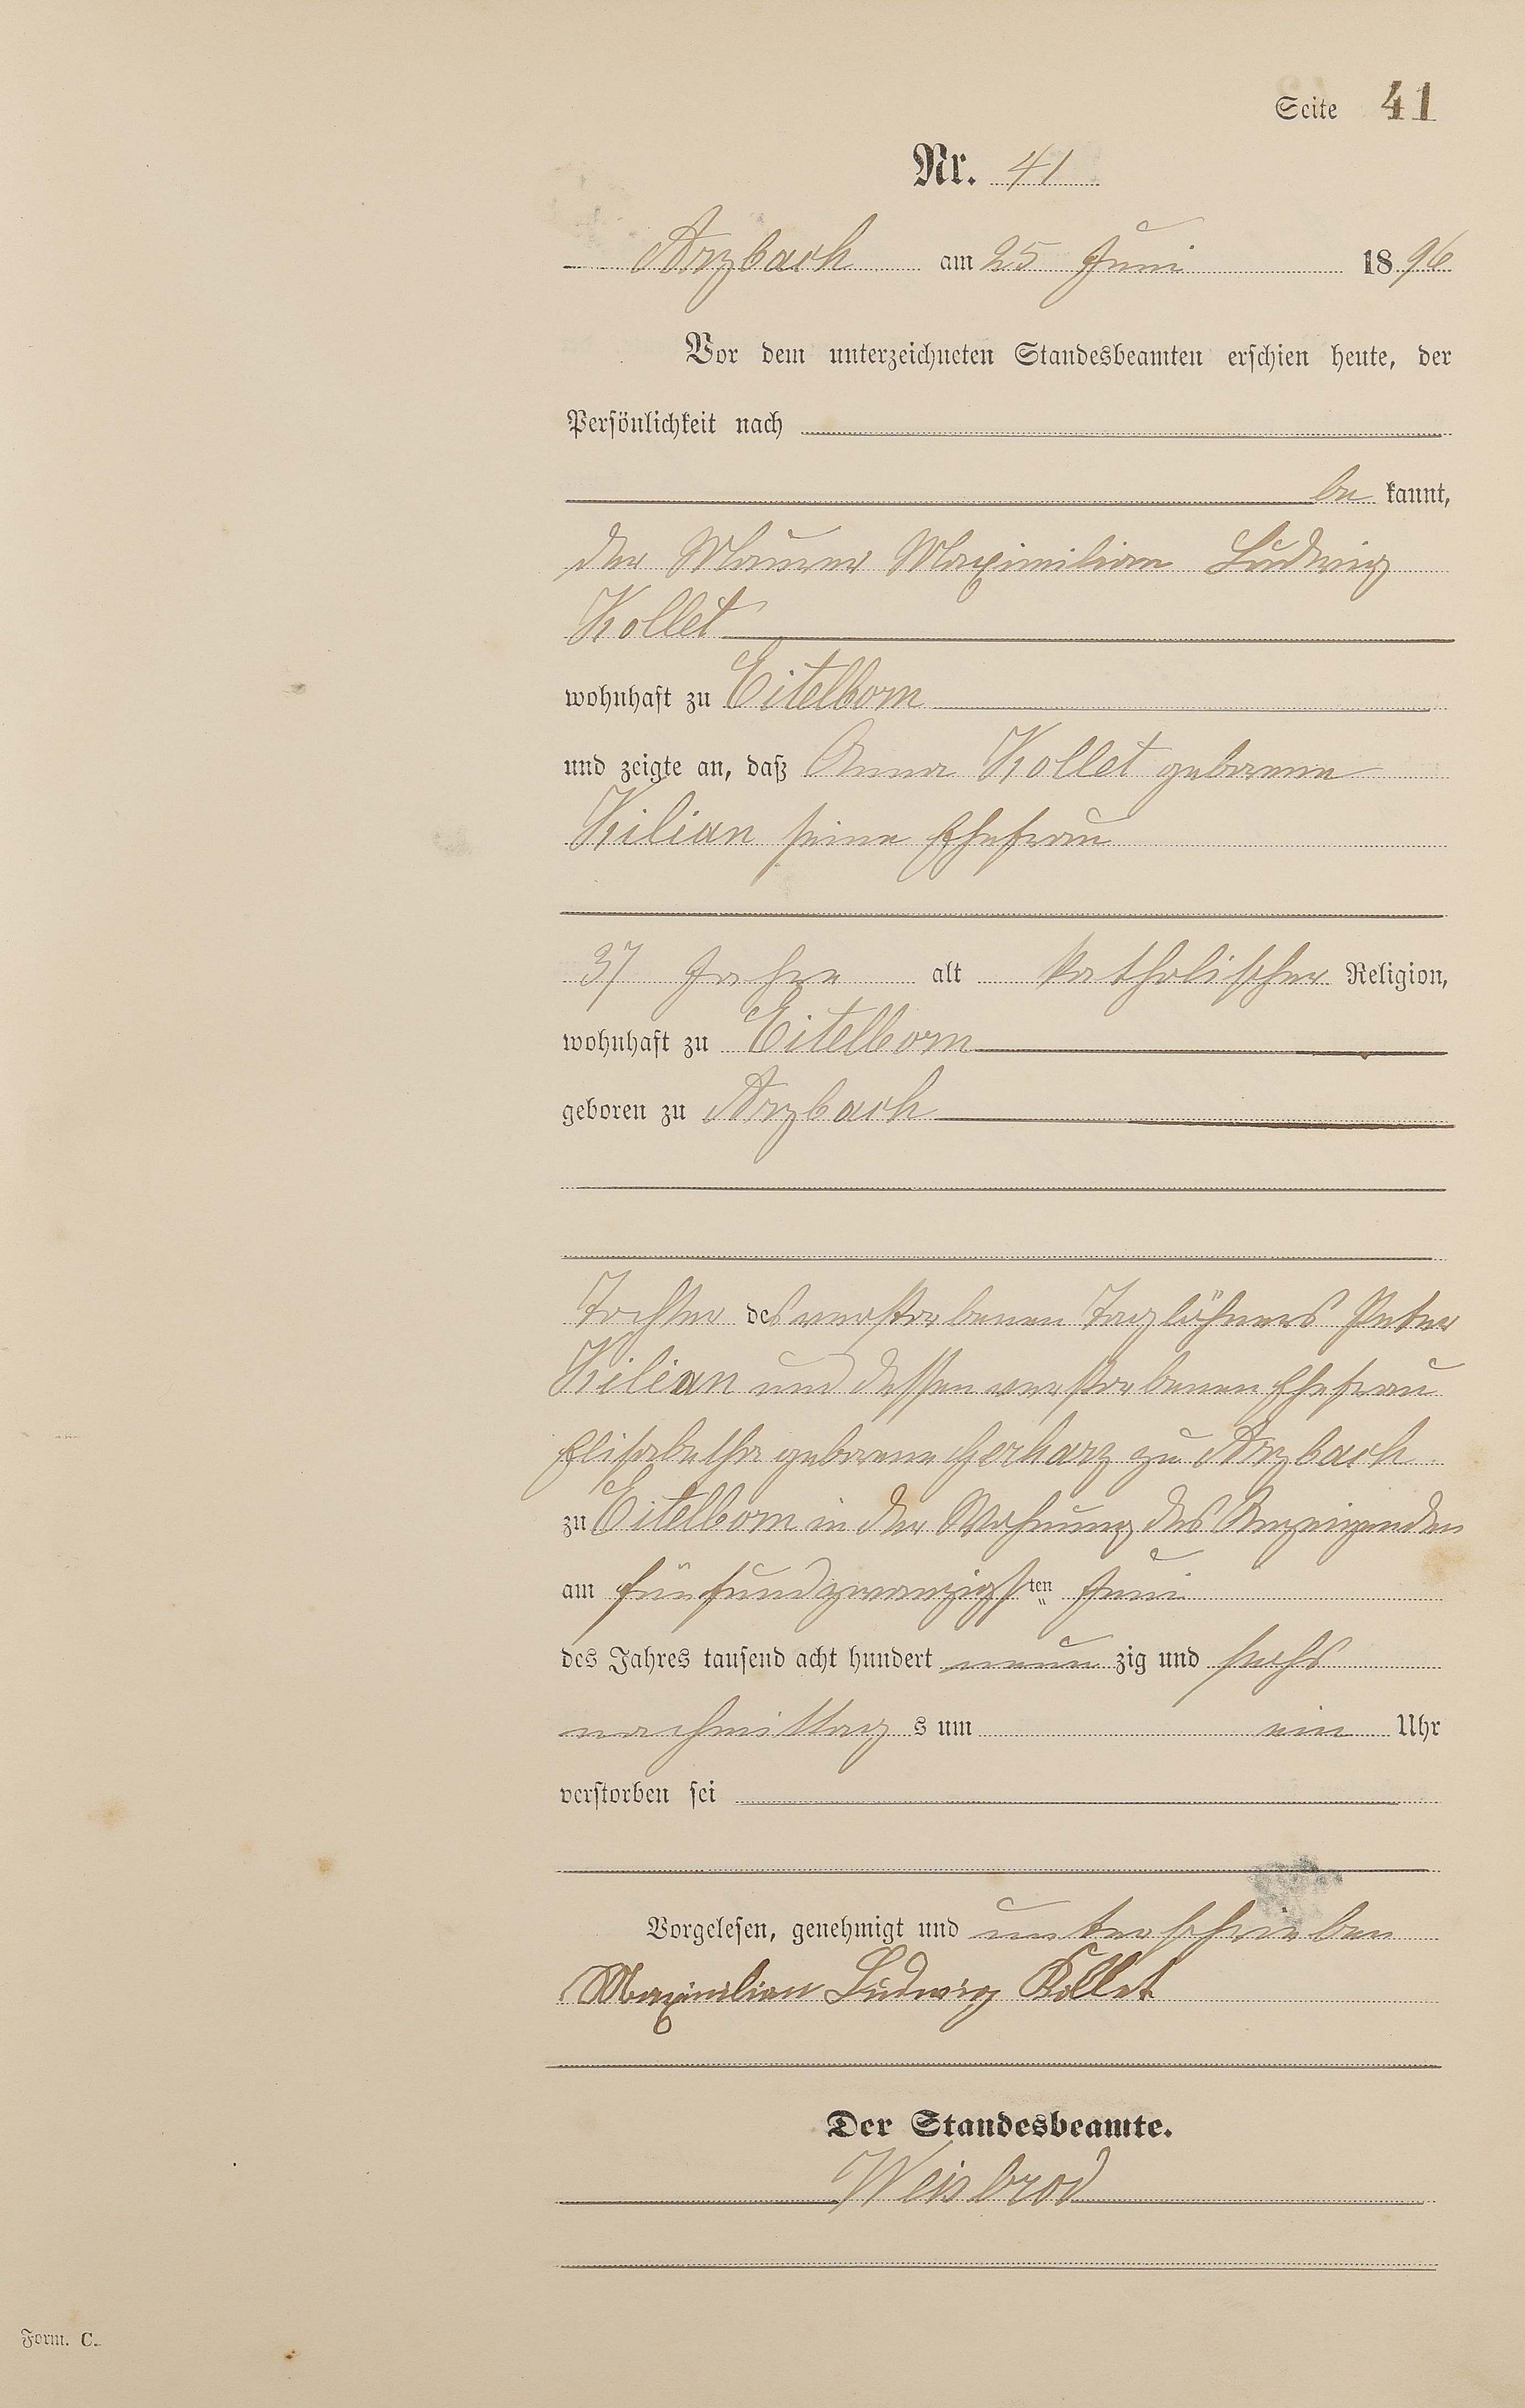 Seite 41
Nr. 41
Arzbach am 25 Juni 1896
Vor dem unterzeichneten Standesbeamten erschien heute, der
Persönlichkeit nach
be kannt,
der Maurer Maximilian Ludwig
Kollet
wohnhaft zu Eitelborn
und zeigte an, daß Anna Kollet geborene
Kilian seine Ehefrau
37 Jahre alt katholischer Religion,
wohnhaft zu Eitelborn
geboren zu Arzbach
Tochter des verstorbenen Taglöhners Peter
Kilian und dessen verstorbenen Ehefrau
Elisabetha geborene Gerharz zu Arzbach
zu Eitelborn in der Wohnung des Anzeigenden
am fünfundzwanzigsten Juni
des Jahres tausend acht hundert neun zig und sechs
nachmittag s um ein Uhr
verstorben sei
Vorgelesen, genehmigt und unterschrieben
Maximilian Ludwig Kollet
Der Standesbeamte.
Weisbrod
Form. C.